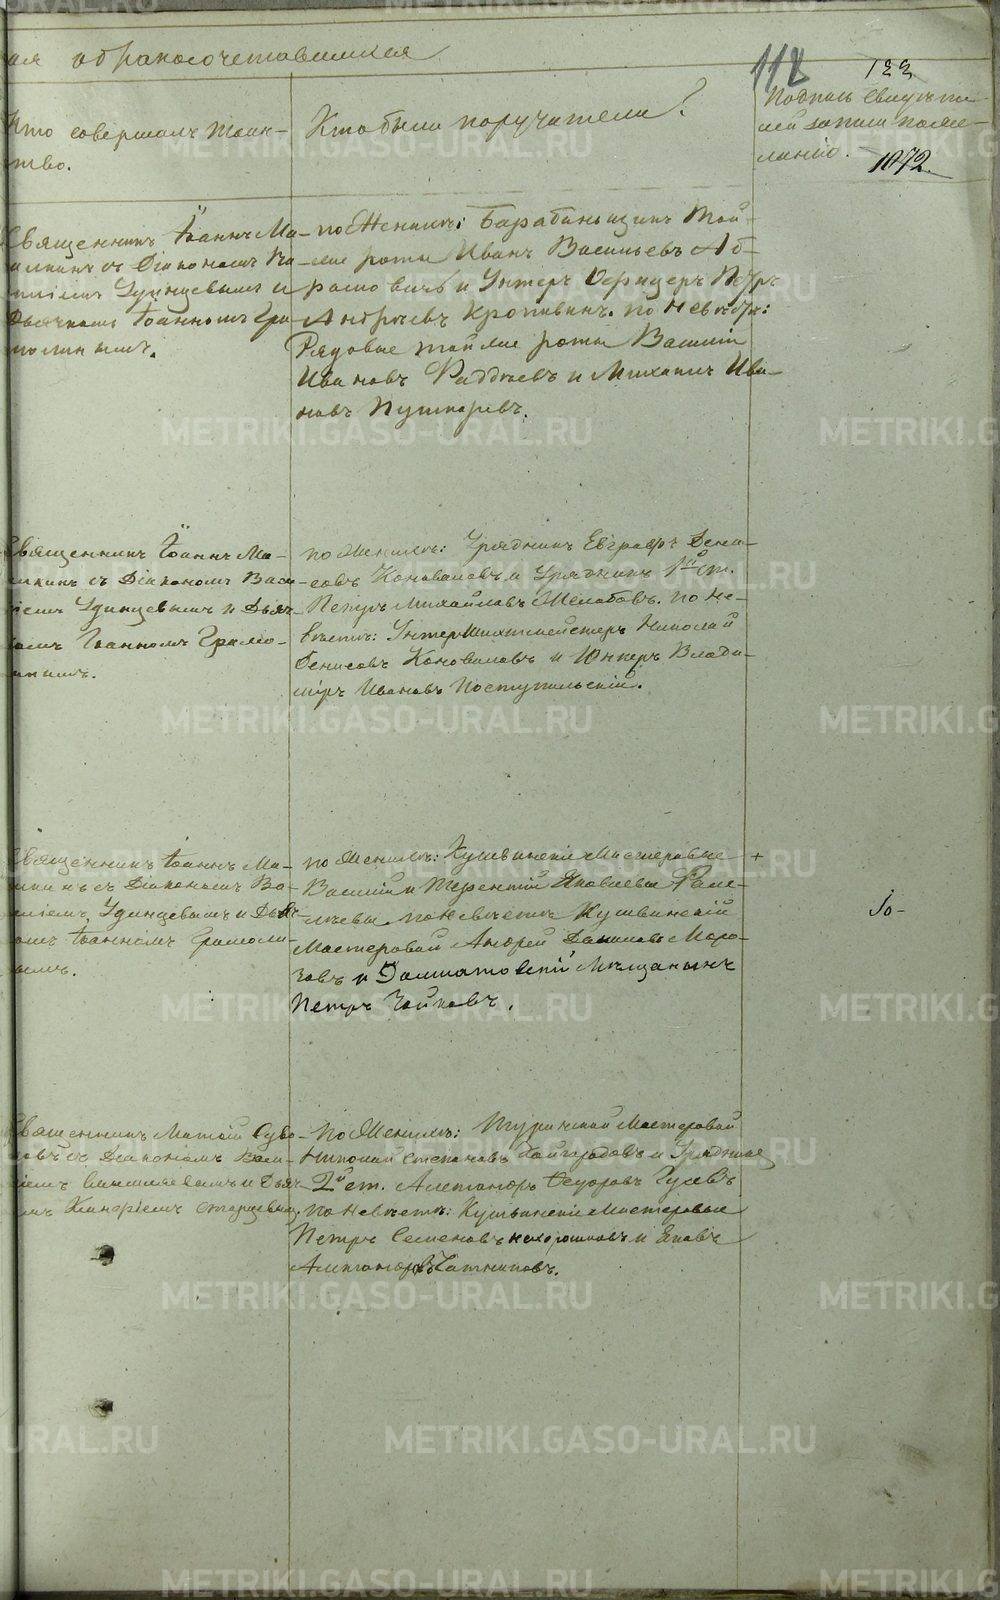 ая о бракосочетавшихся
118
122
Кто совершалъ таин-
ство.
Кто были поручители?
Подпись свидѣте-
лей записи по же-
ланію.
1072.
Священникъ Іоаннъ Ма-
съ Діакономъ Ва-
силіемъ Удинцевымъ и
Дьячкомъ Іоанномъ Гра-
молинымъ.
по Женихѣ: Барабаньщикъ той-
же роты Иванъ Васильевъ Аб-
рамовичь и Унтеръ Офицеръ Петръ
Андреевъ Кропивинъ. по Невѣстѣ:
Рядовые той же роты Василій
Ивановъ Фаддѣевъ и Михаилъ Ива-
новъ Пушкаревъ.
Священникъ Іоаннъ Ма-
съ Діакономъ Васи-
ліемъ Удинцевымъ и Дьяч-
комъ Іоанномъ Грамо-
линымъ.
по Женихѣ: Урядникъ Евграфъ Дени-
совъ Коноваловъ и Урядникъ 1й ст.
Петръ Михайловъ Желобовъ. по Не-
вѣстѣ: Унтершихтмейстеръ Николай
Денисовъ Коноваловъ и Юнкеръ Влади-
міръ Ивановъ Поступальскій.
Священникъ Іоаннъ Ма-
съ Діакономъ Ва-
силіемъ Удинцевымъ и Дьяч-
комъ Іоанномъ Грамоли-
нымъ.
по Женихѣ: Кушвинскіе Мастеровые +
Василій и Терентій Яковлевы
по Невѣстѣ Кушвинскій
Мастеровой Андрей Даниловъ Моро-
зовъ и Долматовскій Мѣщанинъ
Петръ Чайковъ.
Священникъ Матѳій Суво-
ровъ съ Діакономъ Васи-
ліемъ и Дьяч-
комъ
по Женихѣ: Туринской Мастеровой
Николай Степановъ Байгородовъ и Урядникъ
2й ст. Александръ Федоровъ Гусевъ
по Невѣстѣ: Кушвинскіе Мастеровые
Петръ Семеновъ Нехорошковъ и Яковъ
Александровъ
METRIKI.GASO-URAL.RU